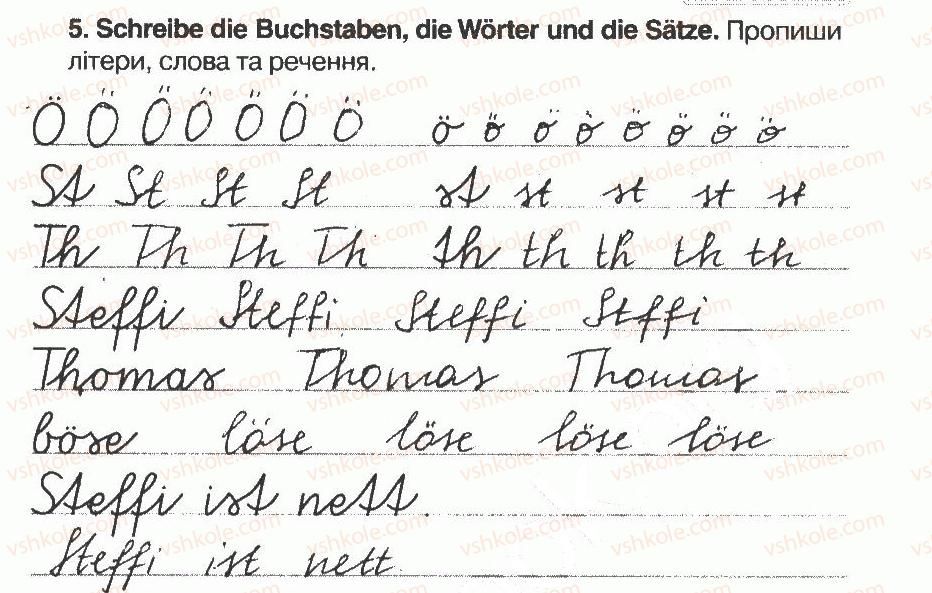 5. Schreibe die Buchstaben, die Wörter und die Sätze. Пропиши
літери, слова та речення.
Ö Ö Ö Ö Ö Ö Ö ö ö ö ö ö ö ö ö
St St St St st st st st st
Th Th Th Th th th th th th
Steffi Steffi Steffi Stffi
Thomas Thomas Thomas
böse löse löse löse löse
Steffi ist nett.
Steffi ist nett.